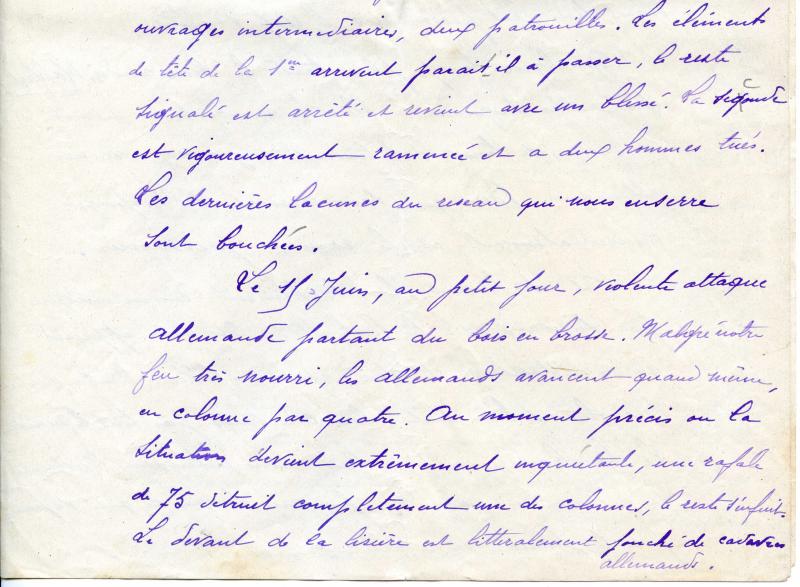 ouvrages intermediaires, deux patrouilles. Les éléments
de tête de la 1ère arrivent parait il à passer, le reste
signalé est arrêté et revient avec un blessé. La seconde
est vigoureusement ramenée et a deux hommes tués.
Les dernières lacunes du reseau qui nous enserre
sont bouchées.
Le 15 Juin, au petit jour, violente attaque
allemande partant du bois en brosse. Malgré notre
feu très nourri, les allemands avancent quand même,
en colonne par quatre. Au moment précis ou la
situation devient extrêmement inquiétante, une rafale
de 75 détruit completement une des colonnes, le reste s'enfuit.
Le devant de la lisière est litteralement jonché de cadavres
allemands.